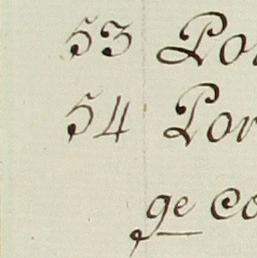 53 Por
54 Por
ge co